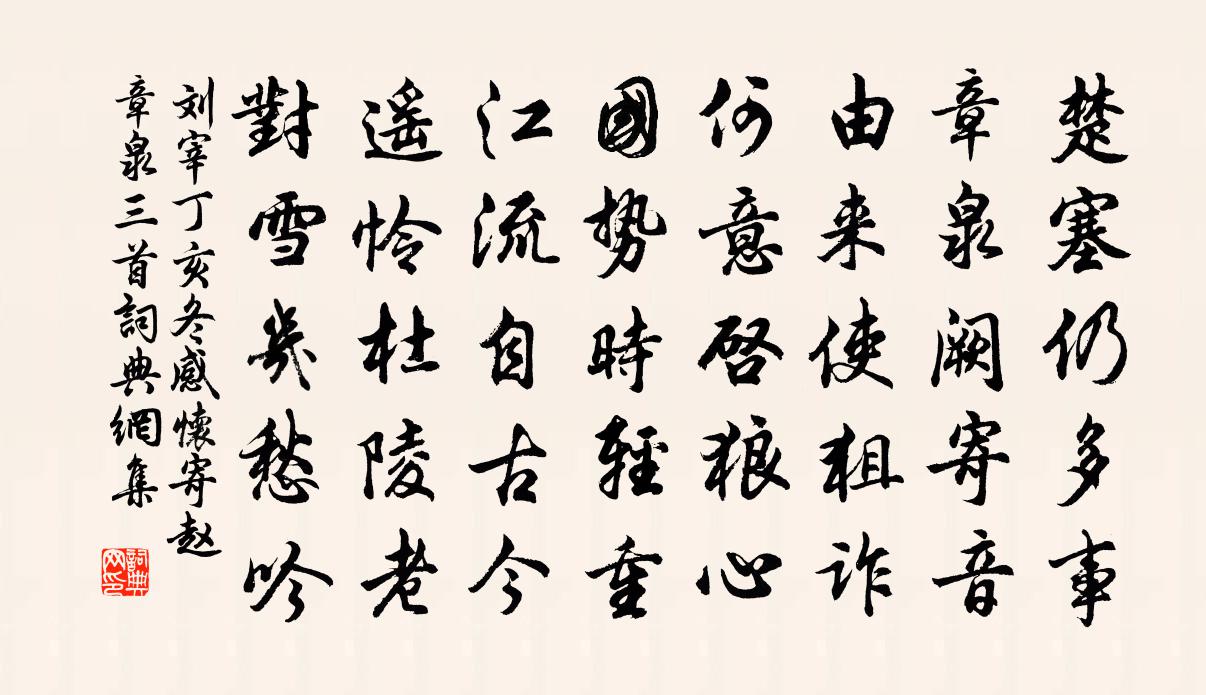 楚塞仍多事
章泉阙寄音
由来使狙诈
何意启狼心
國勢時輕重
江流自古今
遥怜杜陵老
對雪幾愁吟
刘宰丁亥冬感懷寄赵
章泉三首詞典網集
詞典
网印